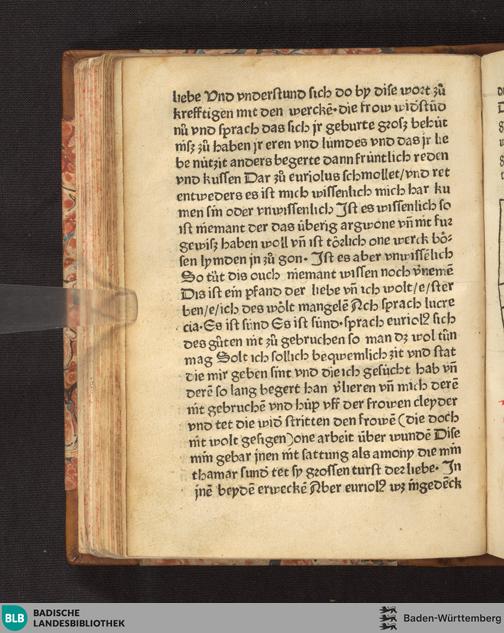 liebe Vnd vnderstund sich do by dise wort zů
krefftigen mit den werckē·die frow widstůd
nů vnd sprach das sich jr geburte grosz behůt
nisz zů haben jr eren vnd lůmdes vnd das jr lie
be nützit anders begerte dann früntlich reden
vnd kussen Dar zů euriolus schmollet/vnd ret
entweders es ist mich wissenlich mich har ku
men sin oder vnwissenlich Jst es wissenlich so
ist niemant der das überig argwone vn̄ nit fur
gewisz haben woll vn̄ ist tözlich one werck bö-
sen lymden jn zů gon· Jst es aber vnwissēlich
So tůt dis ouch niemant wissen noch v̓nemē
Dis ist ein pfand der liebe vn̄ ich wolt/e/ster
ben/e/ich des wölt mangelē Ach sprach lucre
cia·Es ist sünd Es ist sünd·sprach euriolꝰ sich
des gůten nit zů gebruchen so man dz wol tůn
mag Solt ich sollich beqwemlich zit vnd stat
die mir geben sint vnd die ich gesůcht hab vn̄
derē so lang begert han v̓lieren vn̄ mich derē
nit gebruchē vnd hůp vff der frowen cleyder
vnd tet die wid̓ stritten den frowē (die doch
nit wolt gesigen)one arbeit über wundē Dise
min gebar jnen nit sattung als amony die min
thamar sund tet sy grossen turst der liebe· Jn
jnē beydē erweckē Aber euriolꝰ wz ingedēck
BLB
BADISCHE
LANDESBIBLIOTHEK
Baden-Württemberg